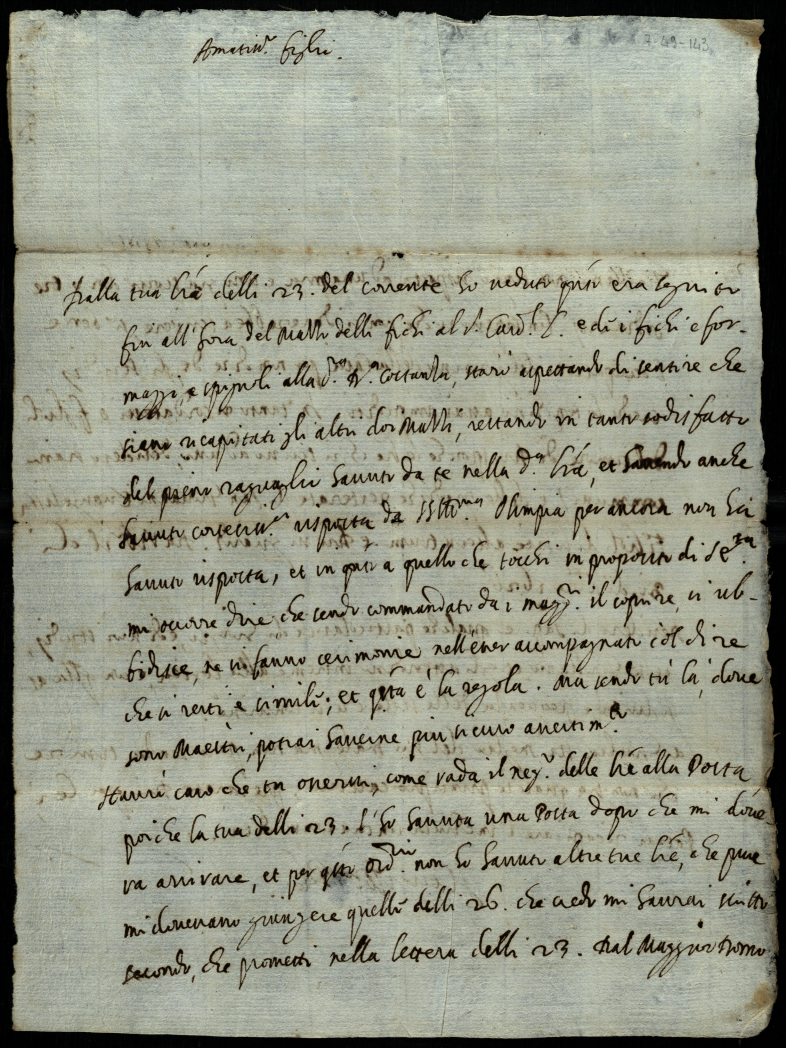 7-49-143
Amatiss.º figlio.
Dalla tua lra delli 23. del corrente ho veduto qto era seguito
fin all'hora del Mall. delli fichi al S. Card. S. e di i fichi e for-
maggi, e spignoli alla S.ra D.a Costanza, starò aspettando di sentire che
siano ricapitati gli altri doi Mall, restando in tanto sodisfatto
del pieno raguaglio havuto da te nella d.a lra, et havendo anche
havuto cortesiss.a risposta da Ill.ma Olimpia per ancora non ho
havuto risposta, et in qto a quello che tocchi in proposito di
mi occorre dire che sendo commandato da i magg.ri il coprire, si ub-
bidisce, ne si fanno cerimonie nell'esser accompagnato col dire
che si resti e simili; et qsta è la regola. Ma sendo tù là, dove
sono Maestri, potrai haverne più sicuro avertim.to
Haurò caro che tu osservi, come vada il neg.º delle lre alla Posta
poiche la tua delli 23. l'ho havuta una Posta dopo che mi dove-
va arrivare, et per qsto ord.rio non ho havuto altre tue lre, che pure
mi dovevano giungere quelle delli 26. che credo mi haurai scritto
secondo, che prometti nella lettera delli 23. Dal Maggior Domo